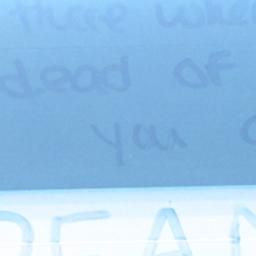 there when
dead of
you
DEAN